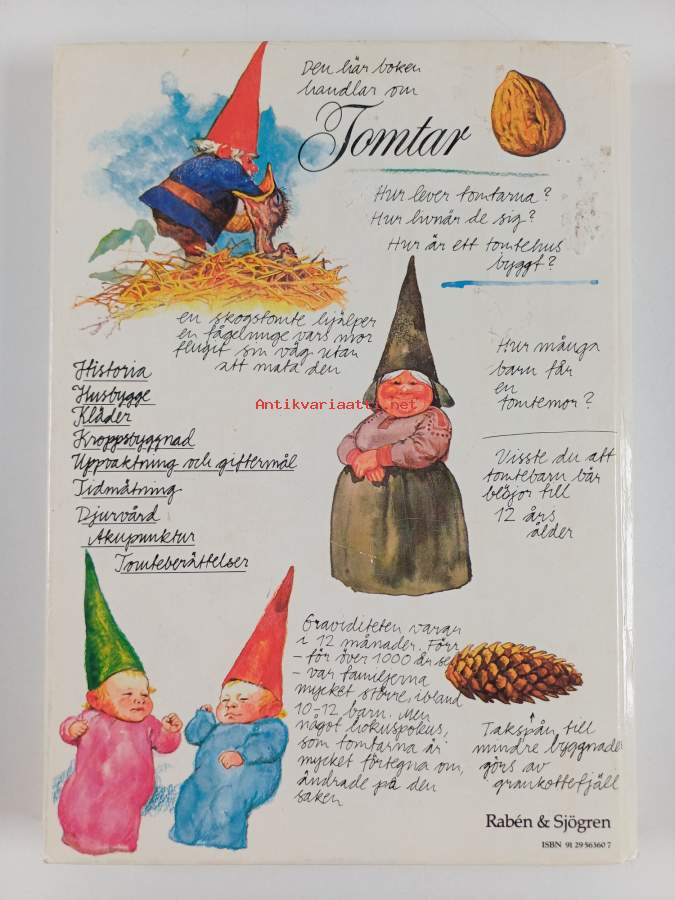 Den här boken
handlar om
Tomtar
Hur lever tomtarna?
Hur livnär de sig?
Hur är ett tomtehus
byggt?
en skogstomte hjälper
en fågelunge vars mor
flugit sin väg utan
att mata den
Historia
Husbygge
Kläder
Kroppsbyggnad
Uppvaktning och giftermål
Tidmätning
Djurvård
Akupunktur
Tomteberättelser
Antikvariaatti.net
Hur många
barn får
en
tomtemor?
Visste du att
tomtebarn bär
blöjor till
12 års
ålder
Graviditeten varar
i 12 månader. Förr
- för över 1000 år sen
- var familjerna
mycket större, ibland
10-12 barn. Men
något hokuspokus,
som tomtarna är
mycket förtegna om,
ändrade på den
saken
Takspån till
mindre byggnader
görs av
grankottefjäll
Rabén & Sjögren
ISBN 91 29 56360 7